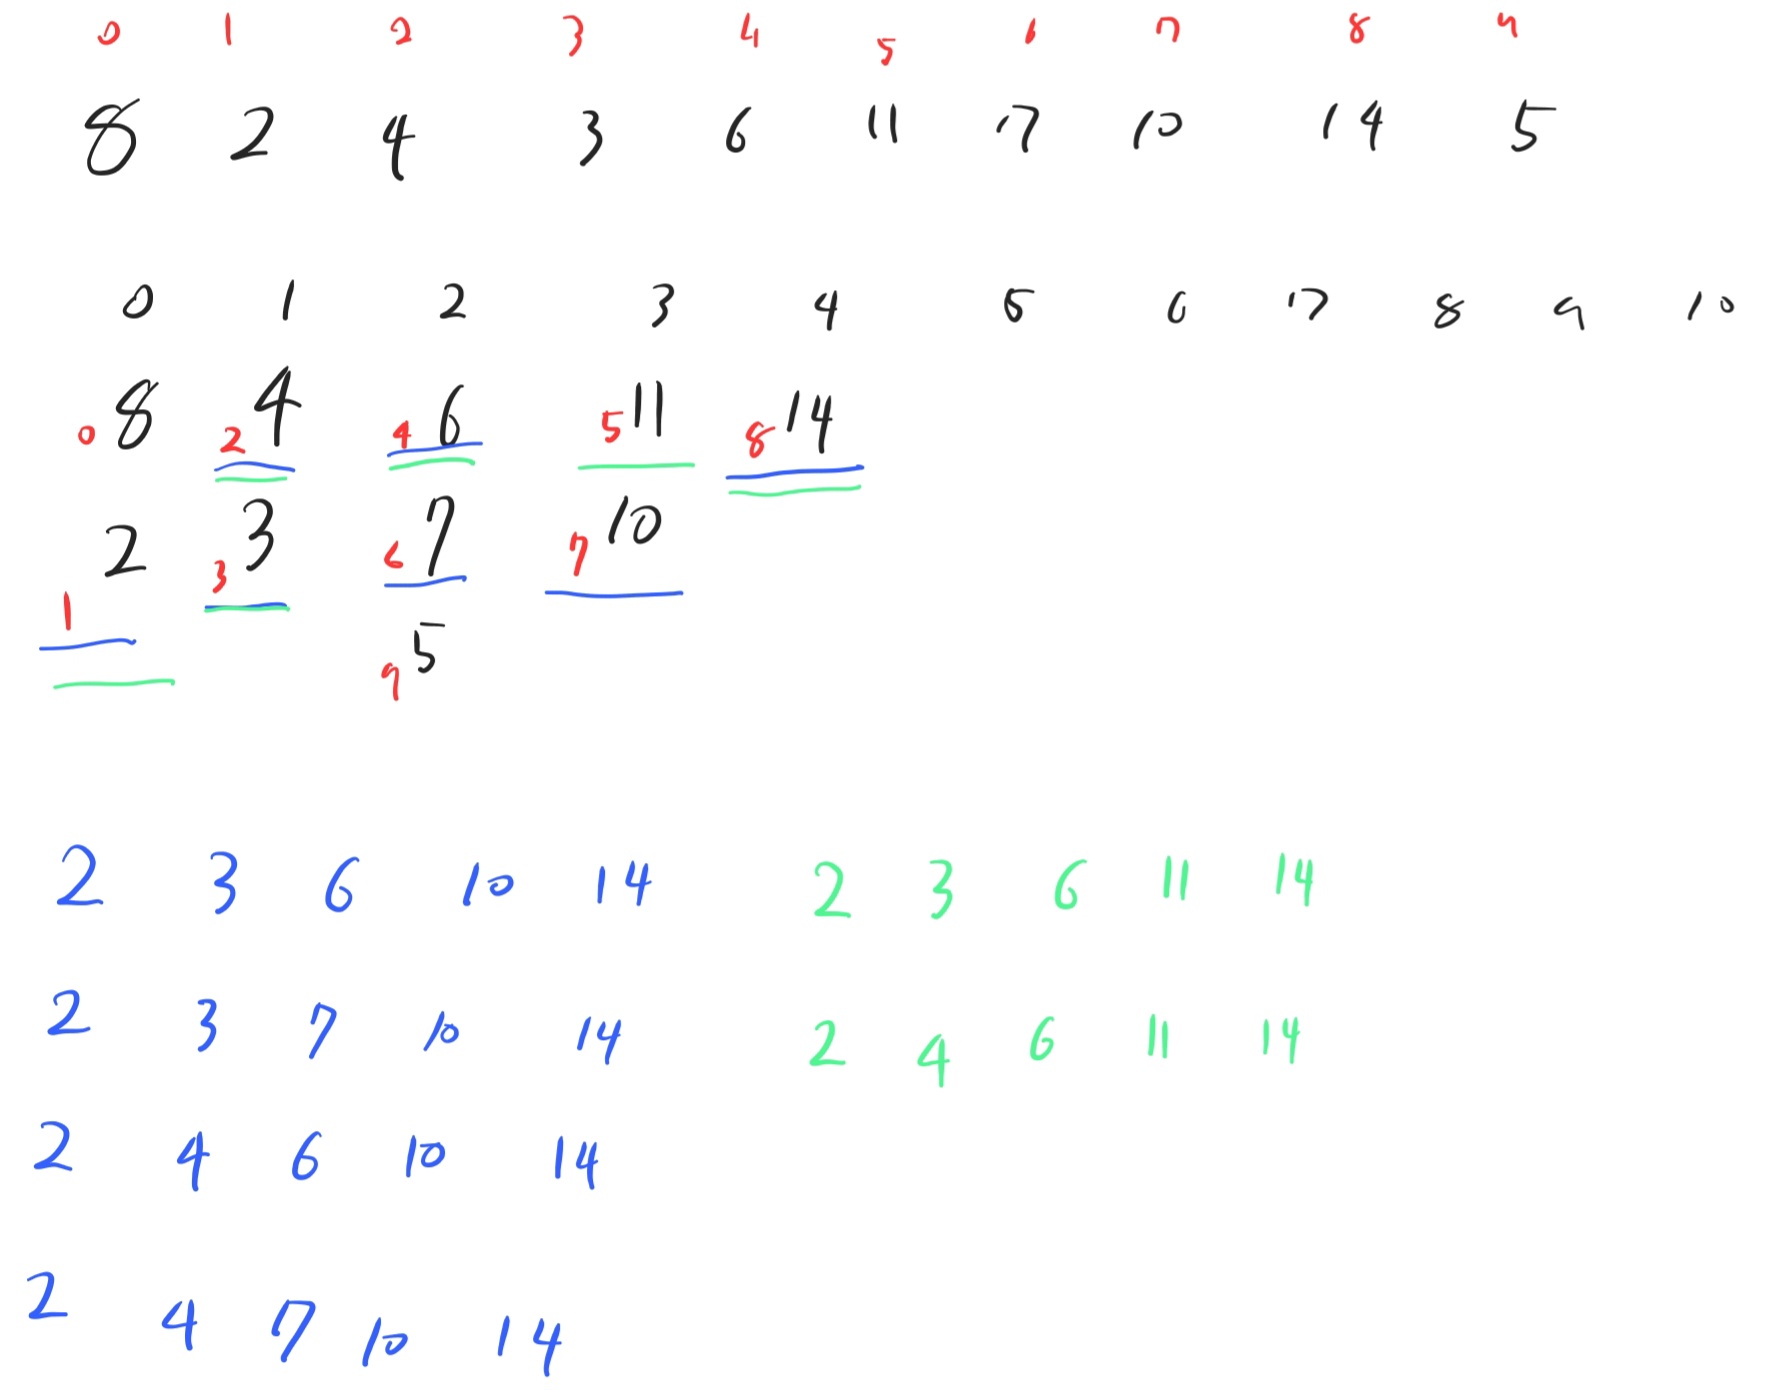 0 1 2 3 4 5 6 7 8 9
8 2 4 3 6 11 7 10 14 5
0 1 2 3 4 5 6 7 8 9 10
0 8 2 4 4 6 5 11 8 14
1 2 3 3 6 7 7 10
9 5
2 3 6 10 14 2 3 6 11 14
2 3 7 10 14 2 4 6 11 14
2 4 6 10 14
2 4 7 10 14